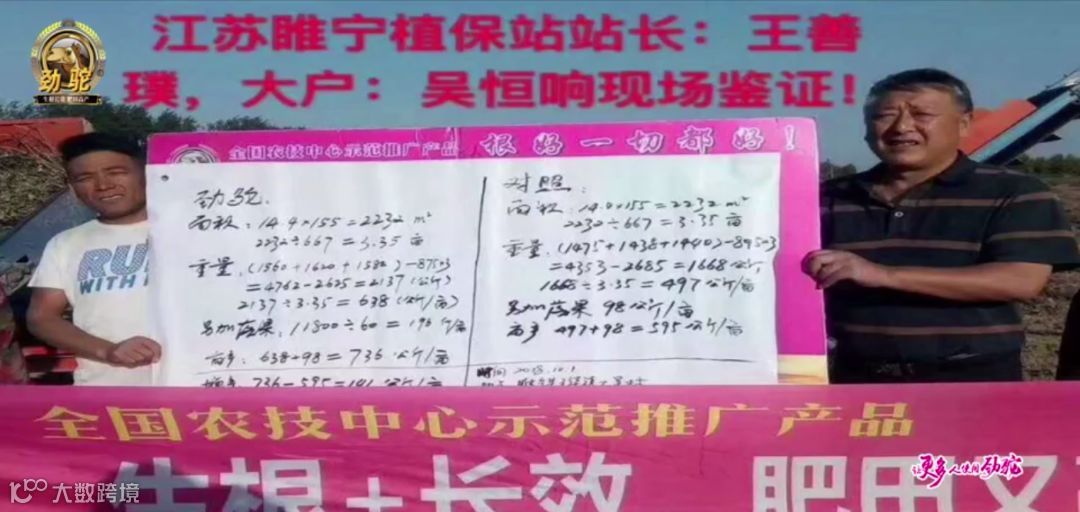 江苏睢宁植保站站长：王善
璞，大户：吴恒响现场鉴证！
劲驼
全国农技中心示范推广产品 根好一切都好！
劲驼
面积：14.4×155=2232 m²
2232÷667=3.35 亩
重量：(1560+1620+1582)-875×3
=4762-2625=2137(公斤)
2137÷3.35=638(公斤/亩)
另加落果 11800÷60=196 斤/亩
亩产：638+98=736 公斤/亩
736-595=141 公斤/亩
对照：
面积：14.4×155=2232 m²
2232÷667=3.35 亩
重量：(1475+1438+1440)-895×3
=4353-2685=1668 公斤
1668÷3.35=497 公斤/亩
另加落果 98 公斤/亩
亩产 497+98=595 公斤/亩
时间 2018.10.1
全国农技中心示范推广产品
生根+长效 肥田又
让更多人使用劲驼
大数跨境